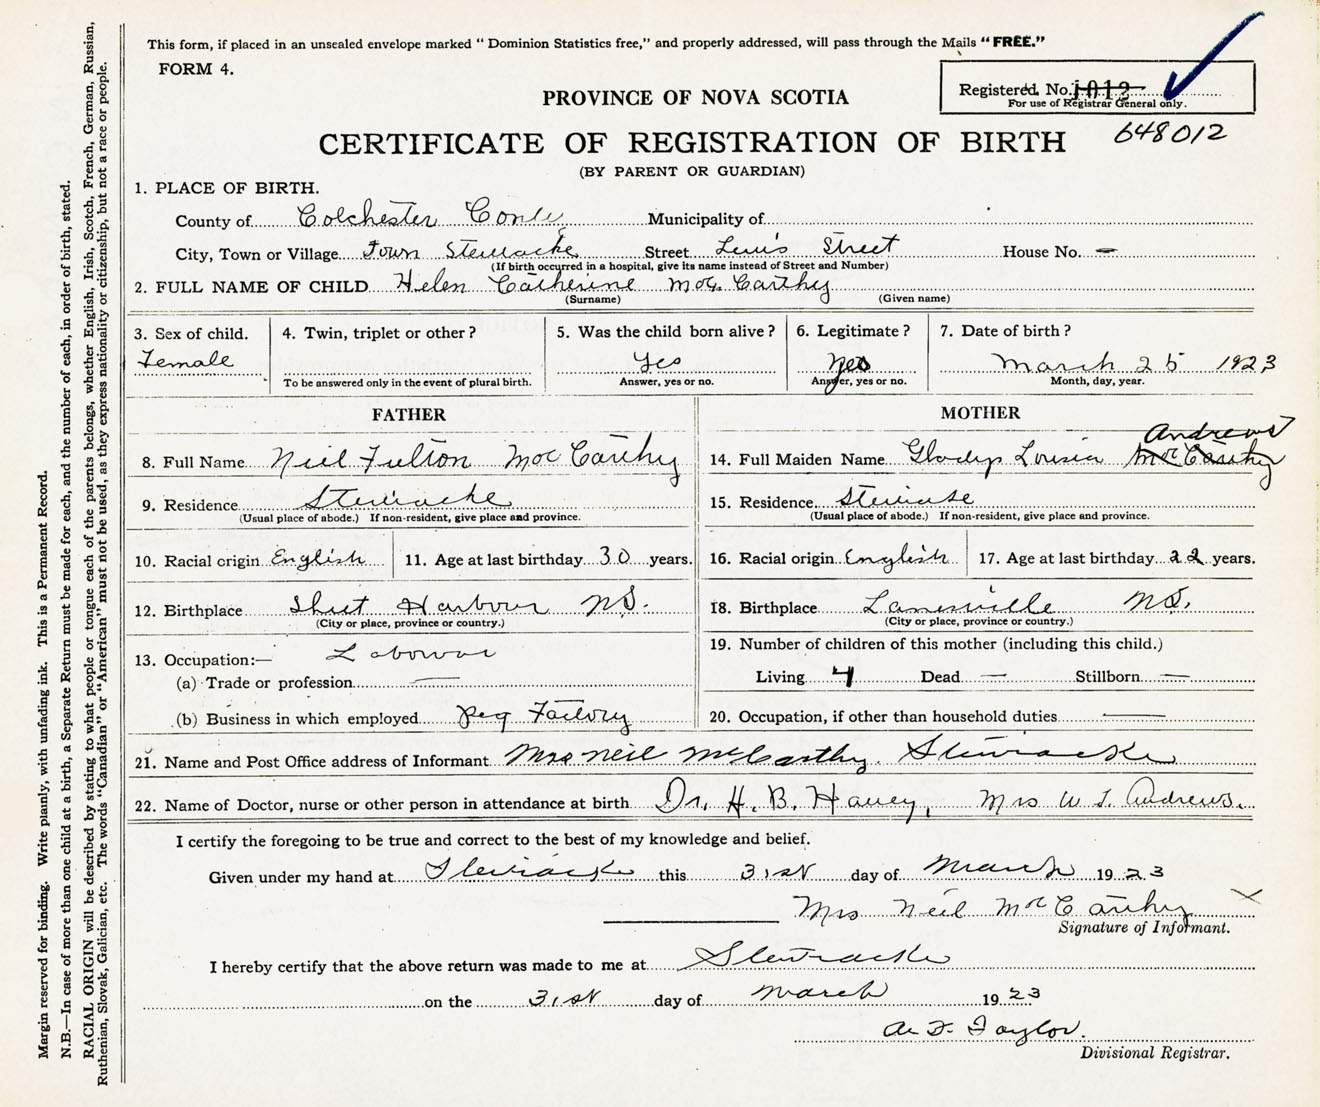 This form, if placed in an unsealed envelope marked “ Dominion Statistics free,” and properly addressed, will pass through the Mails “ FREE.”
FORM 4.
Registered. No. 1012
For use of Registrar General only.
PROVINCE OF NOVA SCOTIA
648012
CERTIFICATE OF REGISTRATION OF BIRTH
(BY PARENT OR GUARDIAN)
1. PLACE OF BIRTH.
County of Colchester Municipality of
City, Town or Village Town Stewiacke Street Lewis Street House No. —
(If birth occurred in a hospital, give its name instead of Street and Number)
2. FULL NAME OF CHILD Helen Catherine McCarthy
(Surname) (Given name)
3. Sex of child. 4. Twin, triplet or other ? 5. Was the child born alive ? 6. Legitimate ? 7. Date of birth ?
Female yes yes March 25 1923
To be answered only in the event of plural birth. Answer, yes or no. Answer, yes or no. Month, day, year.
FATHER MOTHER
Andrews
8. Full Name Neil Fulton McCarthy 14. Full Maiden Name Gladys Louisia McCarthy
9. Residence Stewiacke 15. Residence
(Usual place of abode.) If non-resident, give place and province. (Usual place of abode.) If non-resident, give place and province.
10. Racial origin English 11. Age at last birthday 30 years. 16. Racial origin English 17. Age at last birthday 22 years.
12. Birthplace Sheet Harbour N.S. 18. Birthplace Lanesville N.S.
(City or place, province or country.) (City or place, province or country.)
19. Number of children of this mother (including this child.)
13. Occupation:—
Living 4 Dead — Stillborn —
(a) Trade or profession —
(b) Business in which employed Peg Factory 20. Occupation, if other than household duties —
21. Name and Post Office address of Informant Mrs Neil McCarthy. Stewiacke
22. Name of Doctor, nurse or other person in attendance at birth Dr. H. B. Havey, Mrs W. J. Andrews.
I certify the foregoing to be true and correct to the best of my knowledge and belief.
Given under my hand at Stewiacke this 31st day of March 1923
Mrs Neil McCarthy
Signature of Informant.
I hereby certify that the above return was made to me at Stewiacke
on the 31st day of March 1923
Taylor.
Divisional Registrar.
Margin reserved for binding. Write plainly, with unfading ink. This is a Permanent Record.
N.B.—In case of more than one child at a birth, a Separate Return must be made for each, and the number of each, in order of birth, stated.
RACIAL ORIGIN will be described by stating to what people or tongue each of the parents belongs, whether English, Irish, Scotch, French, German, Russian,
Ruthenian, Slovak, Galician, etc. The words “Canadian” or “American” must not be used, as they express nationality or citizenship, but not a race or people.